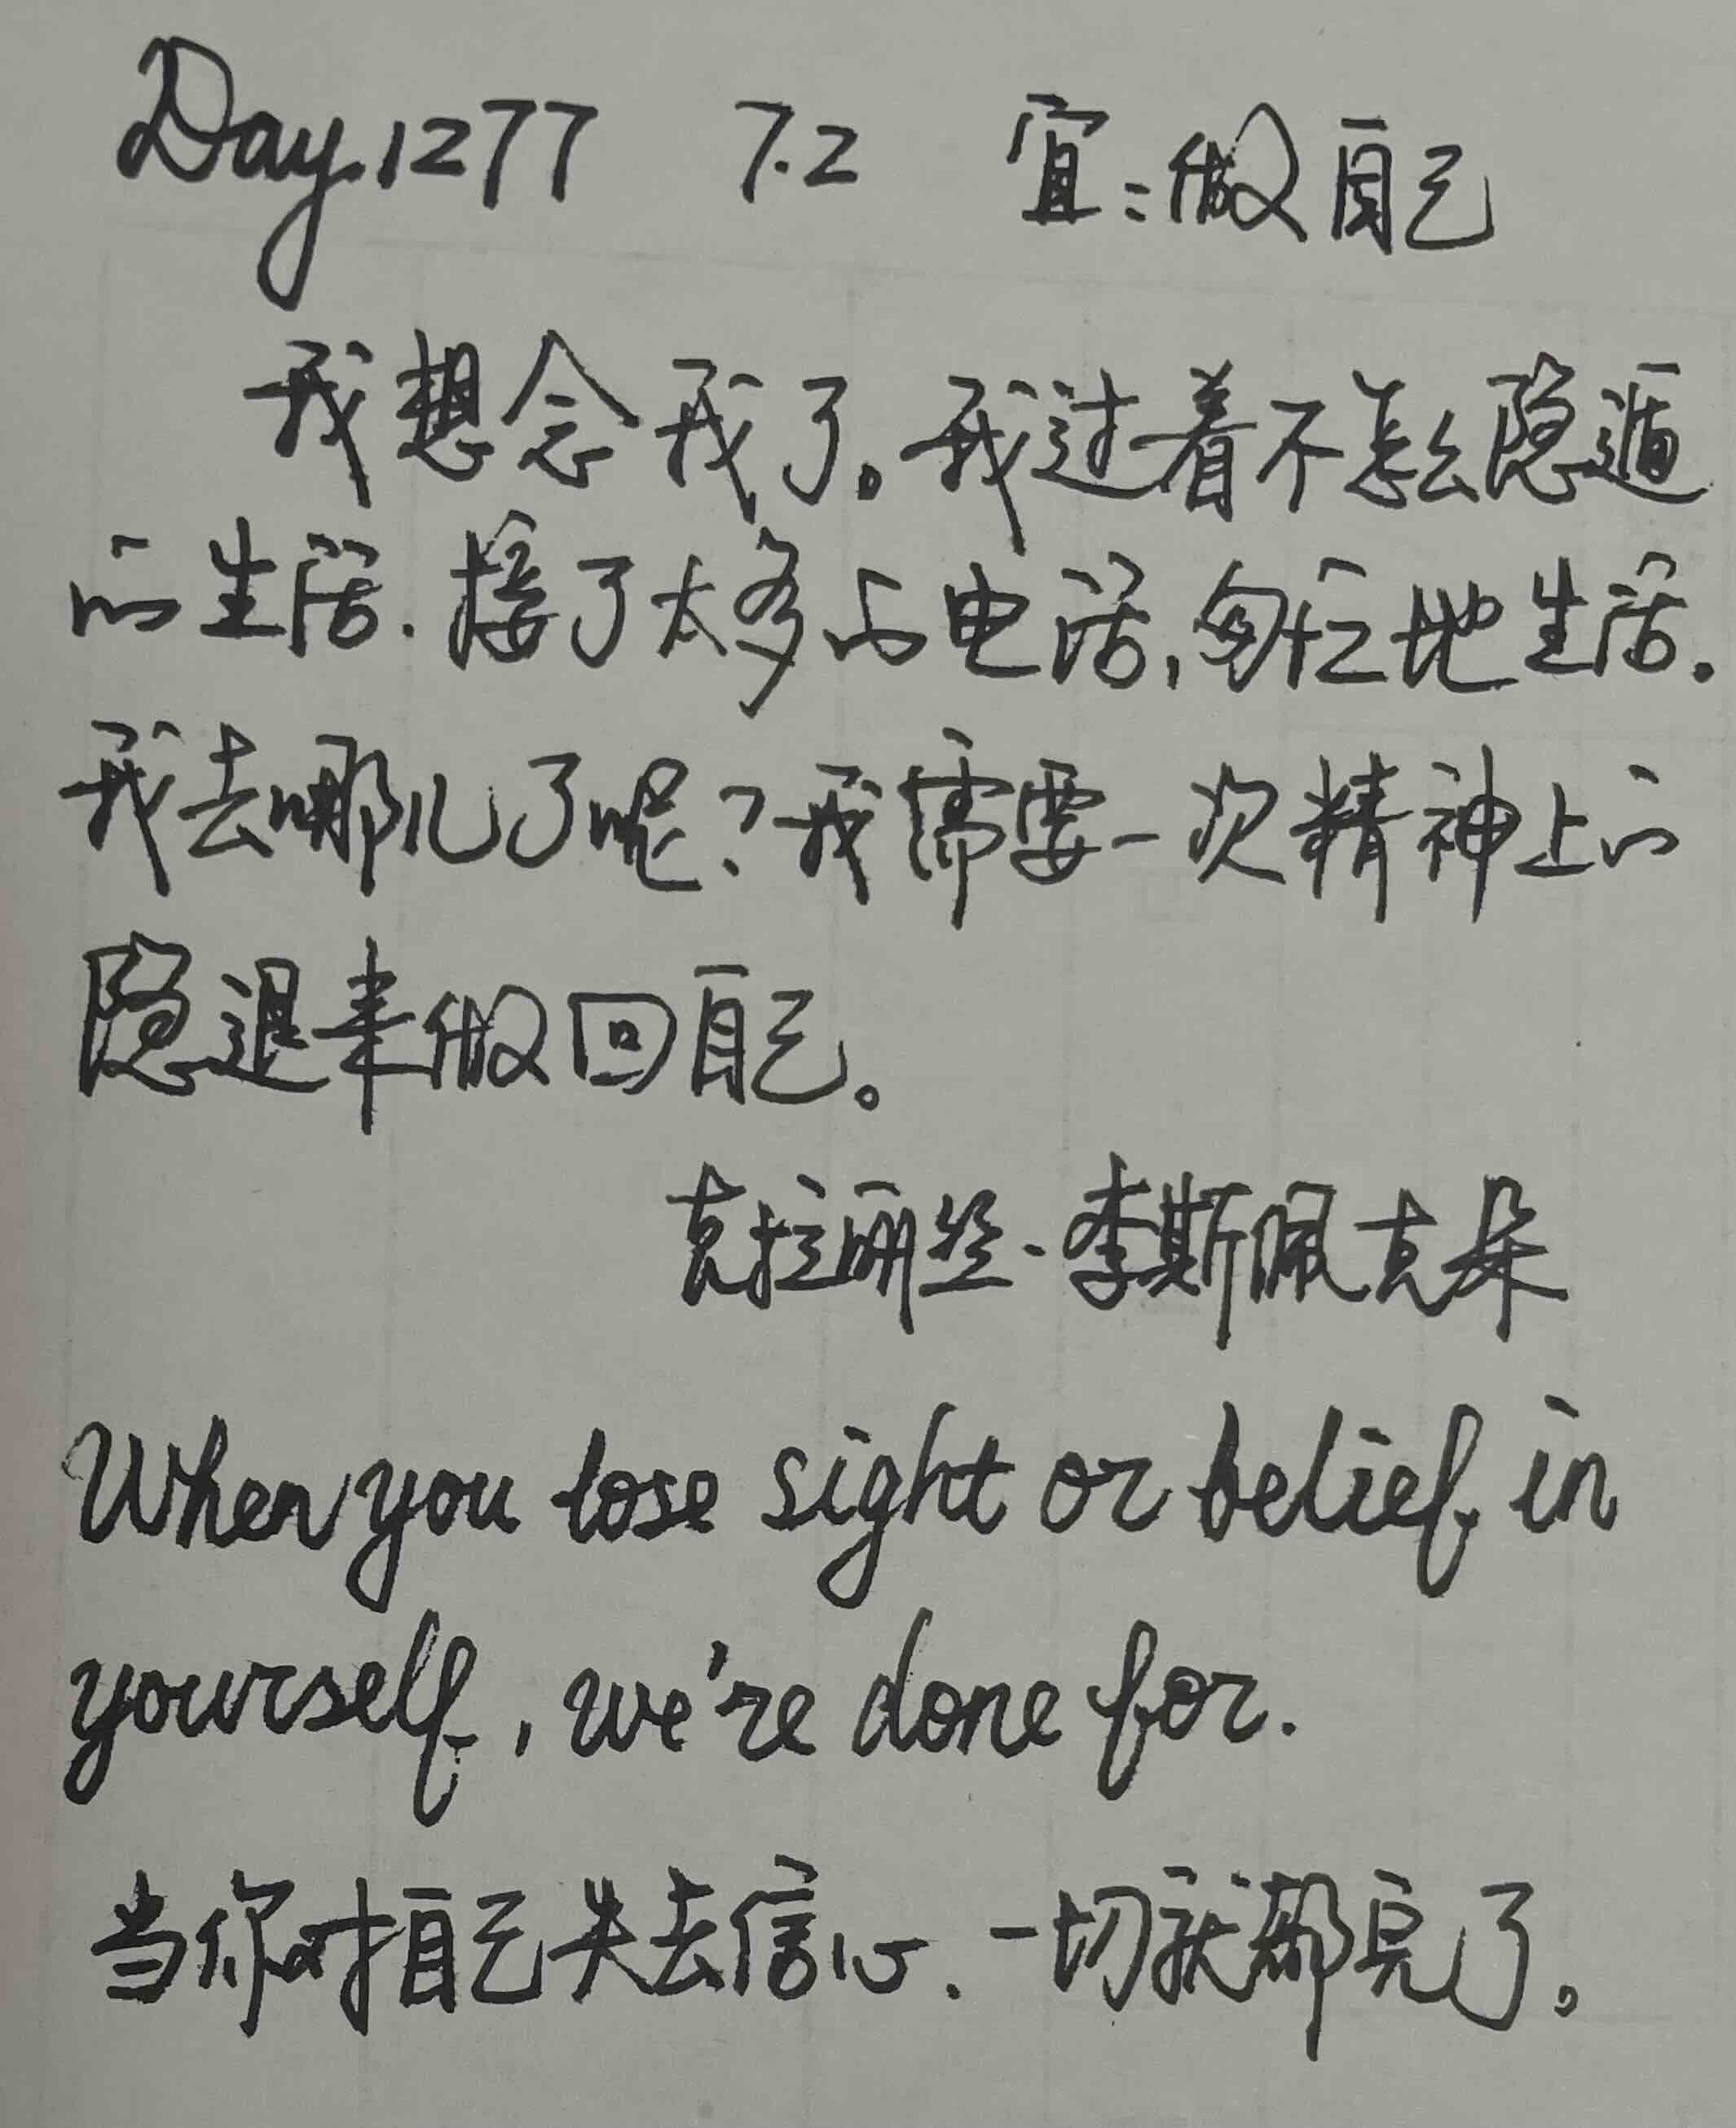 Day.1277 7.2 宜:做自己
我想念我了。我过着不怎么隐遁
的生活.接了太多的电话,匆忙地生活。
我去哪儿了呢?我需要一次精神上的
隐退来做回自己。
克拉丽丝·李斯佩克朵
When you lose sight or belief in
yourself, we're done for.
当你对自己失去信心.一切就都完了。